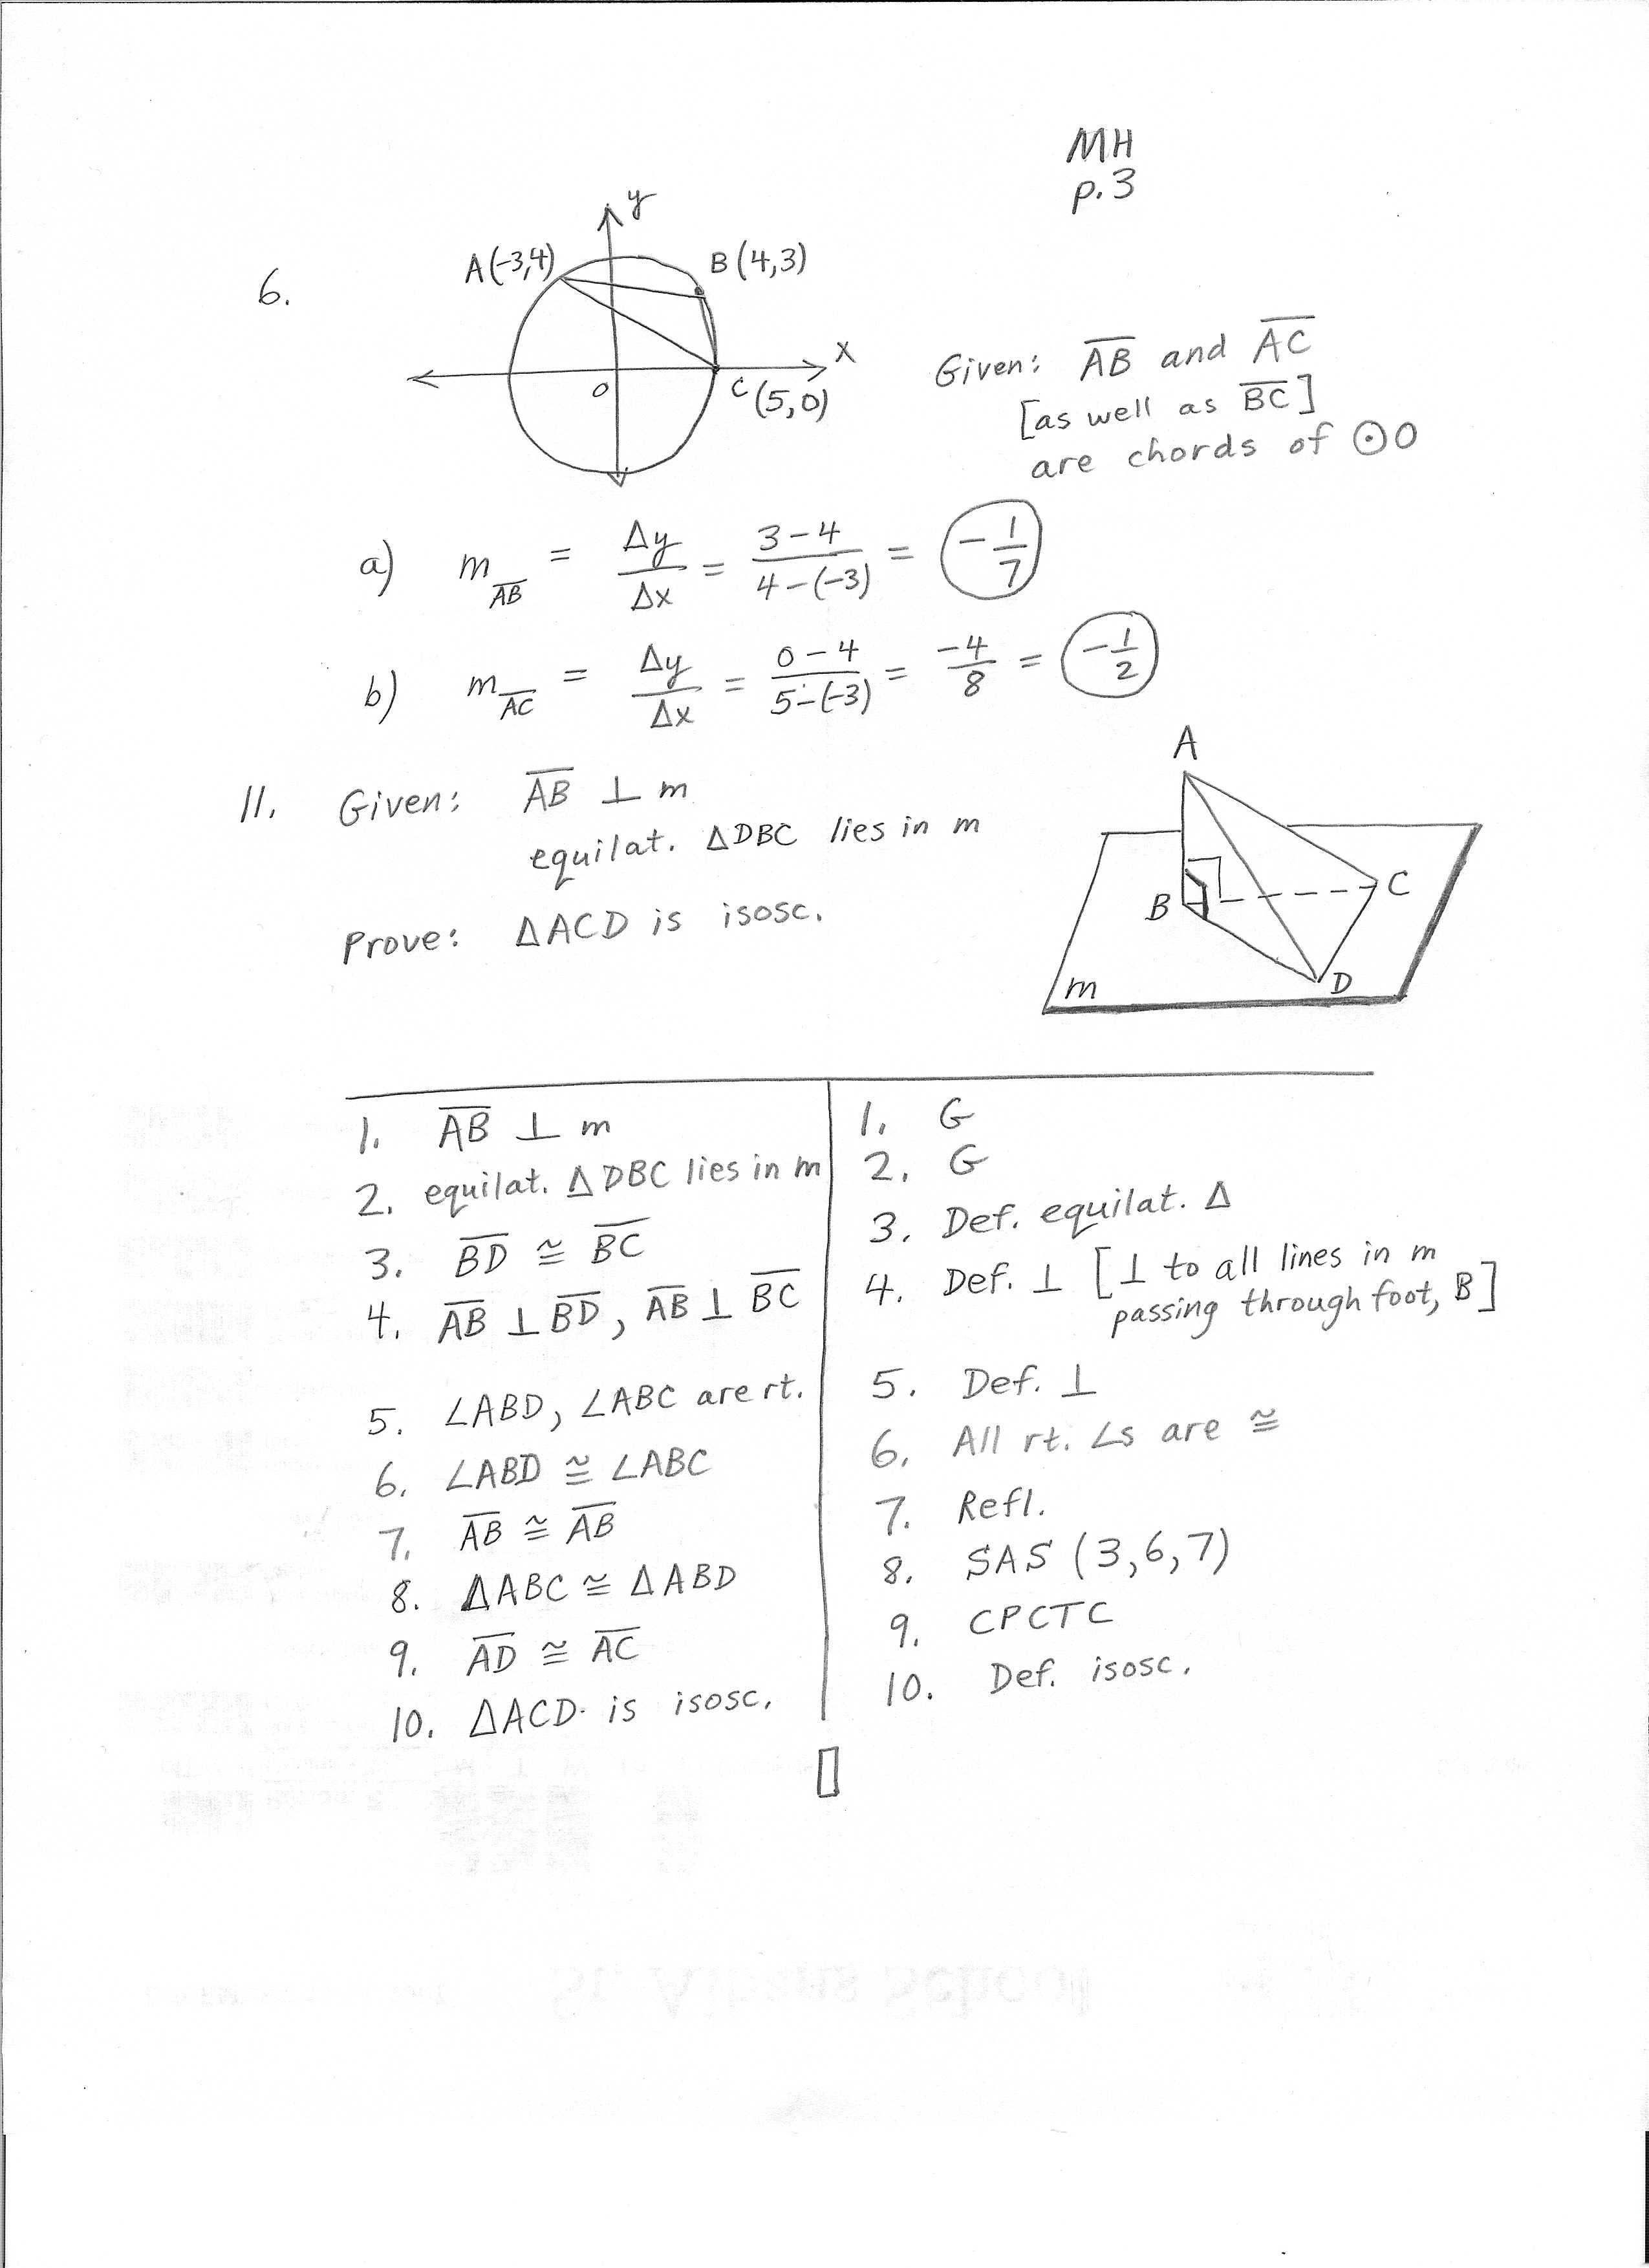 MH
p.3
6.
y
A(-3,4)
B(4,3)
x
O
C(5,0)
Given: A̅B̅ and A̅C̅
[as well as B̅C̅]
are chords of ⊙O
a) m A̅B̅ = Δy/Δx = (3-4)/(4-(-3)) = -1/7
b) m A̅C̅ = Δy/Δx = (0-4)/(5-(-3)) = -4/8 = -1/2
11. Given: A̅B̅ ⊥ m
equilat. ΔDBC lies in m
Prove: ΔACD is isosc.
A
B
C
D
m
1. A̅B̅ ⊥ m 1. G
2. equilat. ΔDBC lies in m 2. G
3. B̅D̅ ≅ B̅C̅ 3. Def. equilat. Δ
4. A̅B̅ ⊥ B̅D̅, A̅B̅ ⊥ B̅C̅ 4. Def. ⊥ [⊥ to all lines in m
passing through foot, B]
5. ∠ABD, ∠ABC are rt. 5. Def. ⊥
6. ∠ABD ≅ ∠ABC 6. All rt. ∠s are ≅
7. A̅B̅ ≅ A̅B̅ 7. Refl.
8. ΔABC ≅ ΔABD 8. SAS (3,6,7)
9. A̅D̅ ≅ A̅C̅ 9. CPCTC
10. ΔACD is isosc. 10. Def. isosc.